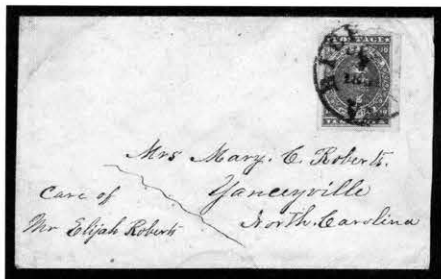 Mrs Mary. C. Roberts.
Yanceyville
North. Carolina
Care of
Mr Elijah Roberts